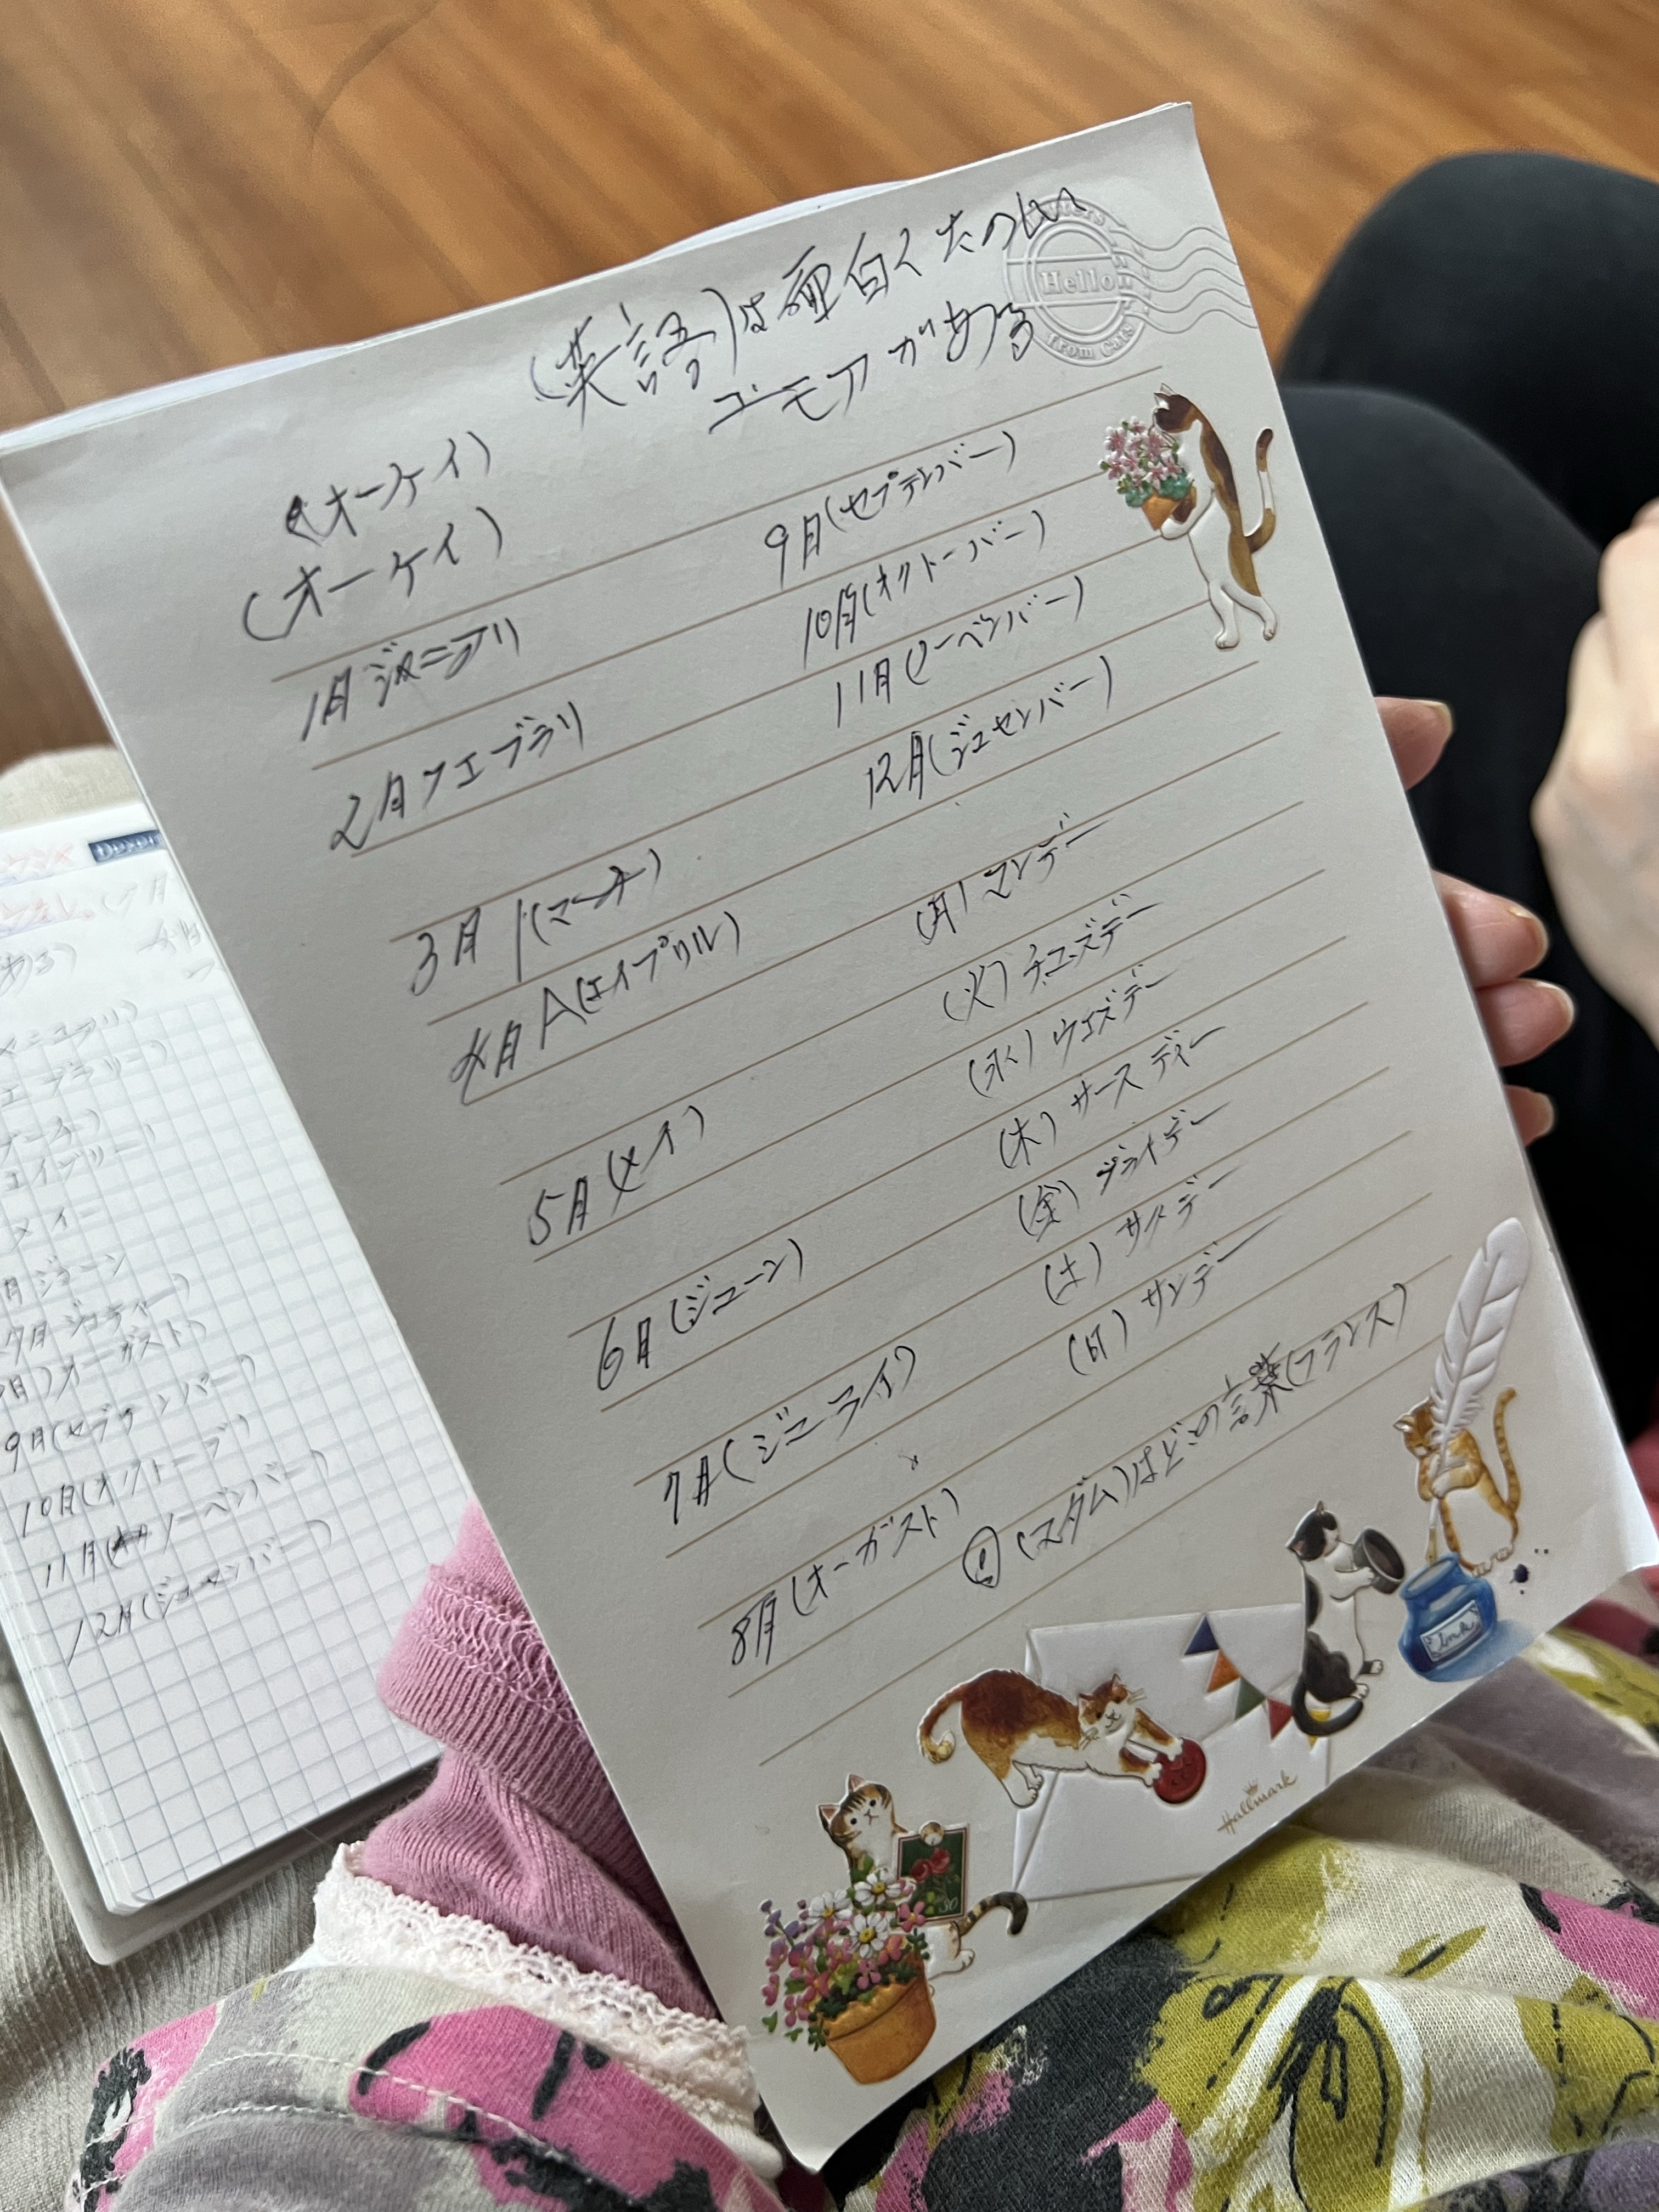 (英語)は面白くたのしい
ユーモアがある
(オーケイ)
(オーケイ)
1月 ジャニアリ
2月 フエブラリ
3月 (マーチ)
4月 A(エイプリル)
5月 (メイ)
6月 (ジューン)
7月 (ジューライ)
8月 (オーガスト)
9月 (セプテンバー)
10月 (オクトーバー)
11月 (ノーベンバー)
12月 (ジュセンバー)
(月) マンデー
(火) チューズデー
(水) ウエズデー
(木) サースディー
(金) フライデー
(土) サタデー
(日) サンデー
(マダム)はどこの言葉(フランス)
Hello
from Cats
Ink
Hallmark
エイプリー)
メイー
月 ジューン
7月
オーガスト)
9月(セプテンバー)
10月(オクトーブ)
11月 ノーベンバー)
12月(ジューセンバー)